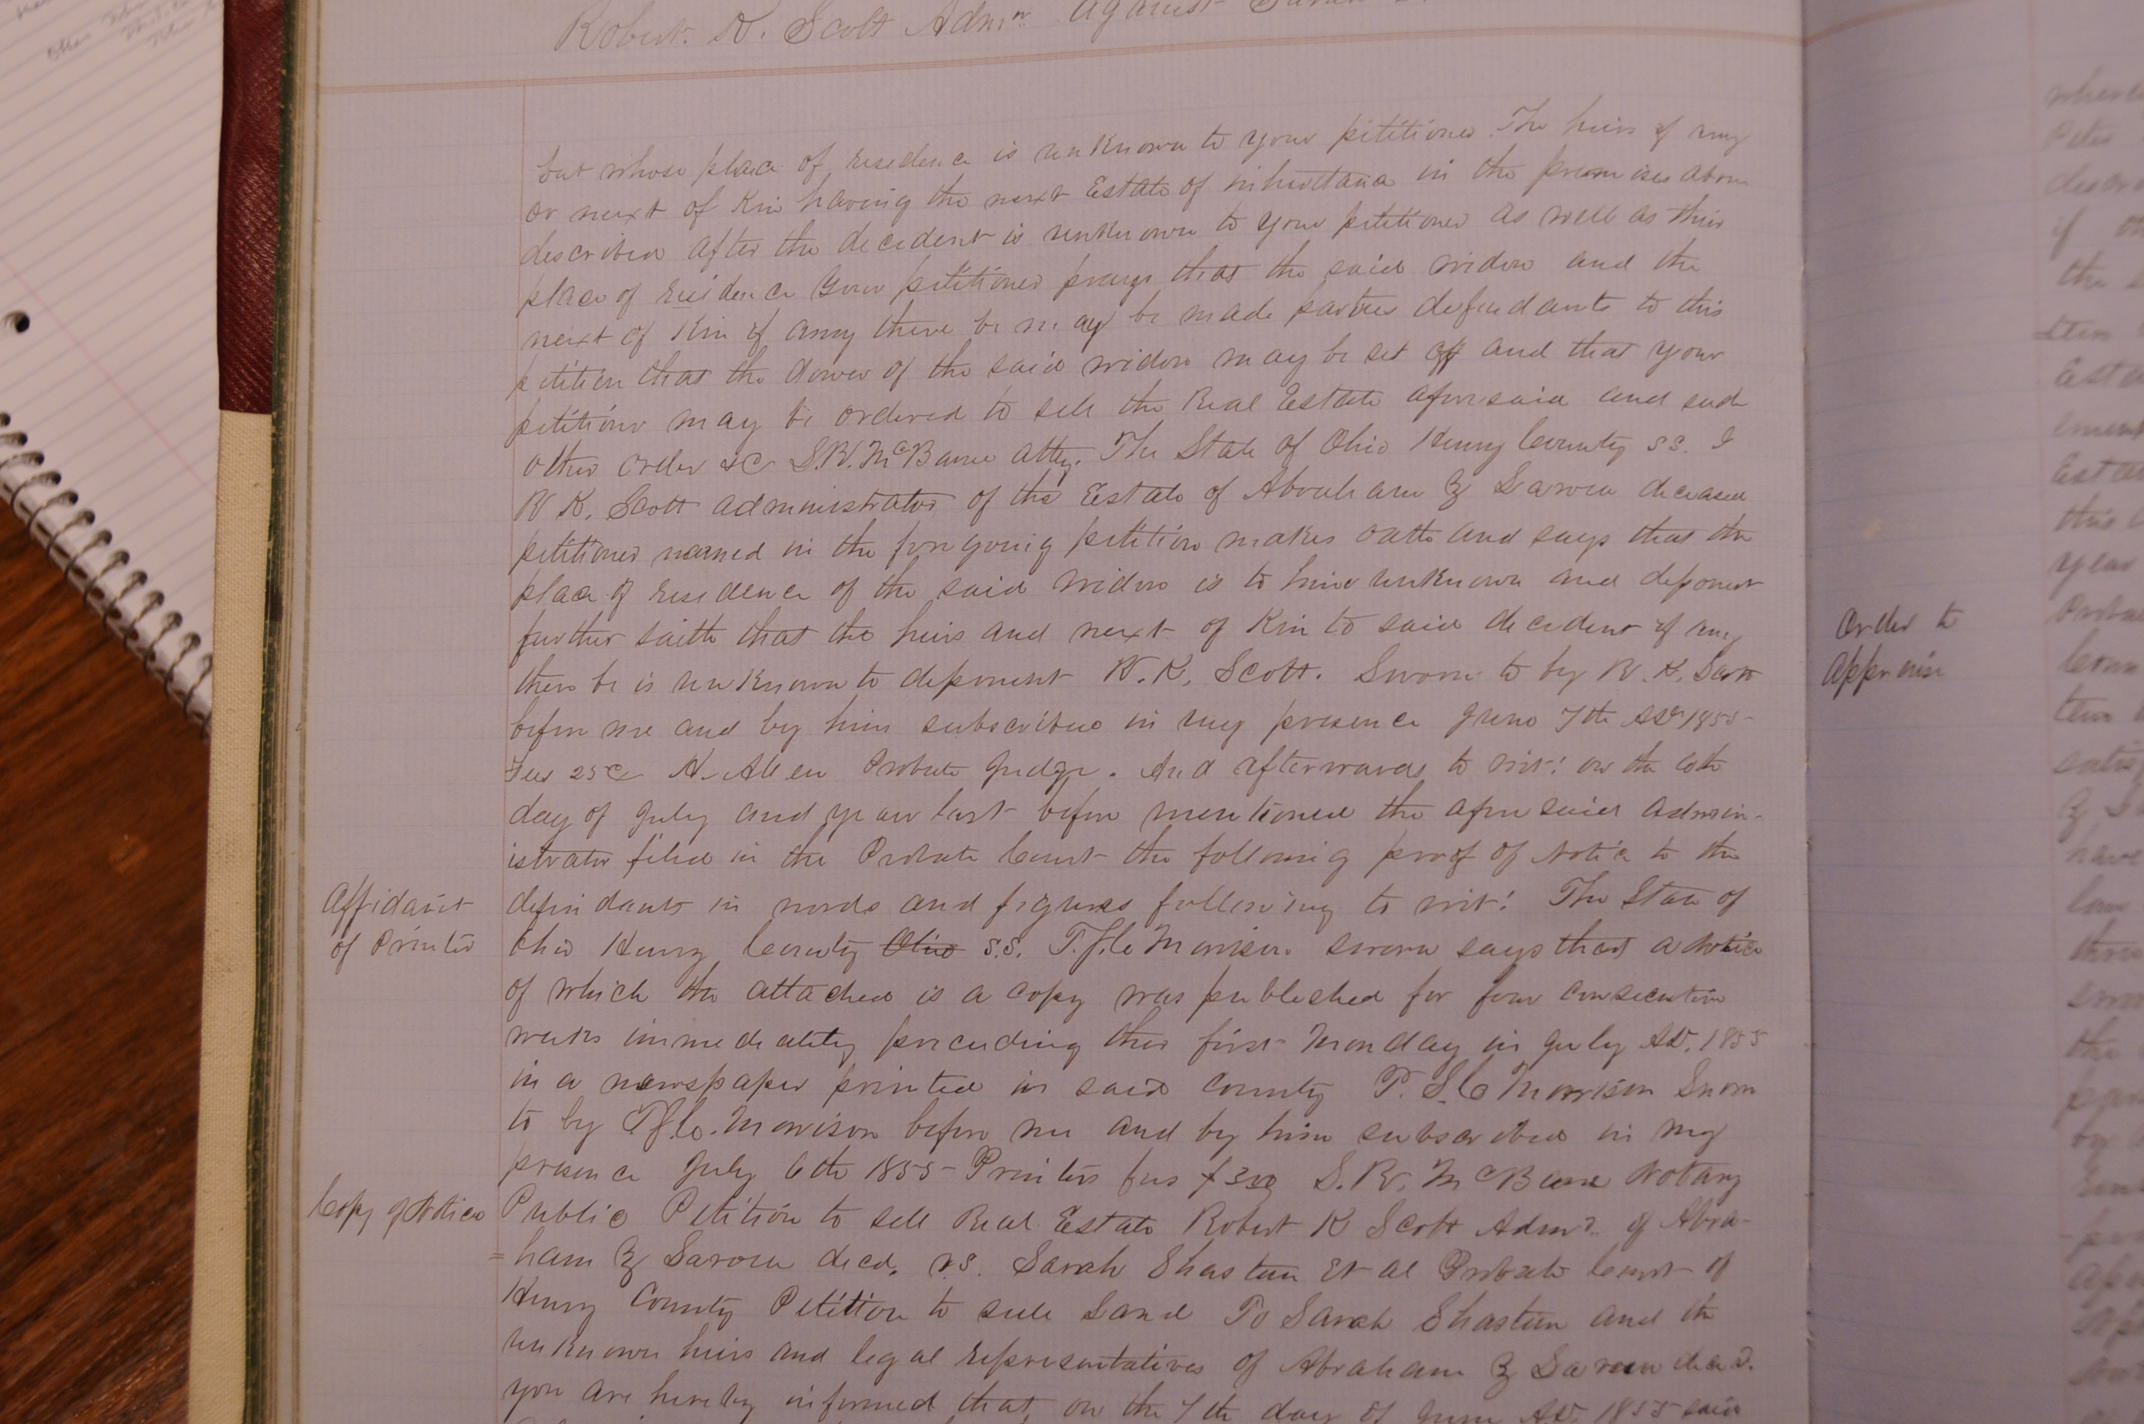 Robert. K. Scott Admr against Sarah
but whose place of residence is unknown to your petitioner. The heirs if any
or next of Kin having the next Estate of inheritance in the premises above
described after the decedent is unknown to your petitioner as well as their
place of residence Your petitioner prays that the said widow and the
next of Kin if any there be may be made parties defendants to this
petition that the dower of the said widow may be set off and that your
petitioner may be ordered to sell the Real Estate aforesaid and such
other order &c S.R. McBane atty. The State of Ohio Henry County SS. I
R K. Scott administrator of the Estate of Abraham Z deceased
petitioner named in the foregoing petition makes oath and says that the
place of residence of the said widow is to him unknown and deponent
further saith that the heirs and next of Kin to said decedent if any
there be is unknown to deponent R. K. Scott. Sworn to by R. K. Scott
before me and by him subscribed in my presence June 7th AD 1855
Fees 25c H. Allen Probate Judge. And afterwards to wit: on the 6th
day of July and year last before mentioned the aforesaid admin-
istrator filed in the Probate Court the following proof of Notice to the
Affidavit
of Printer
defendants in words and figures following to wit: The State of
Ohio Henry County Ohio S.S. Morrison sworn says that a Notice
of which the attached is a copy was published for four consecutive
weeks immediately preceeding the first Monday in July AD. 1855
in a newspaper printed in said County Morrison Sworn
to by Morrison before me and by him subscribed in my
presence July 6th 1855 Printers fees $300 S. R. McBane Notary
Copy of Notice
Public Petition to sell Real Estate Robert K Scott Admr. of Abra-
=ham Z decd. vs. Sarah Shasteen Et al Probate Court of
Henry County Petition to sell Land To Sarah Shasteen and the
unknown heirs and legal representatives of Abraham Z decd.
you are hereby informed that on the 7th day of June AD. 1855 said
Order to
Appraise